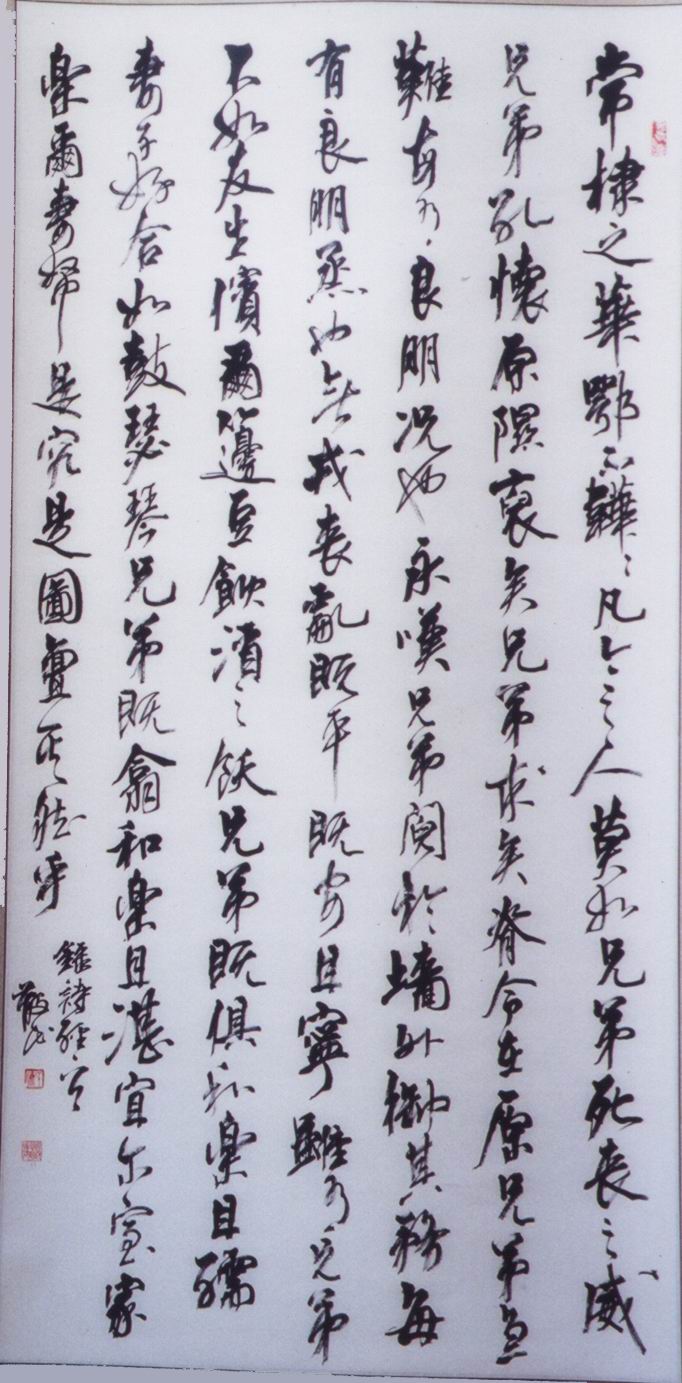 常棣之華鄂不韡〻凡今之人莫如兄弟死喪之威
兄弟孔懷原隰裒矣兄弟求矣脊令在原兄弟急
難每有良朋况也永嘆兄弟鬩於墻外御其務每
有良朋烝也無戎喪亂既平既安且寧雖有兄弟
不如友生儐爾籩豆飲酒之飫兄弟既俱和樂且孺
妻子好合如鼓瑟琴兄弟既翕和樂且湛宜尔室家
樂爾妻帑是究是圖亶其然乎
錄詩經